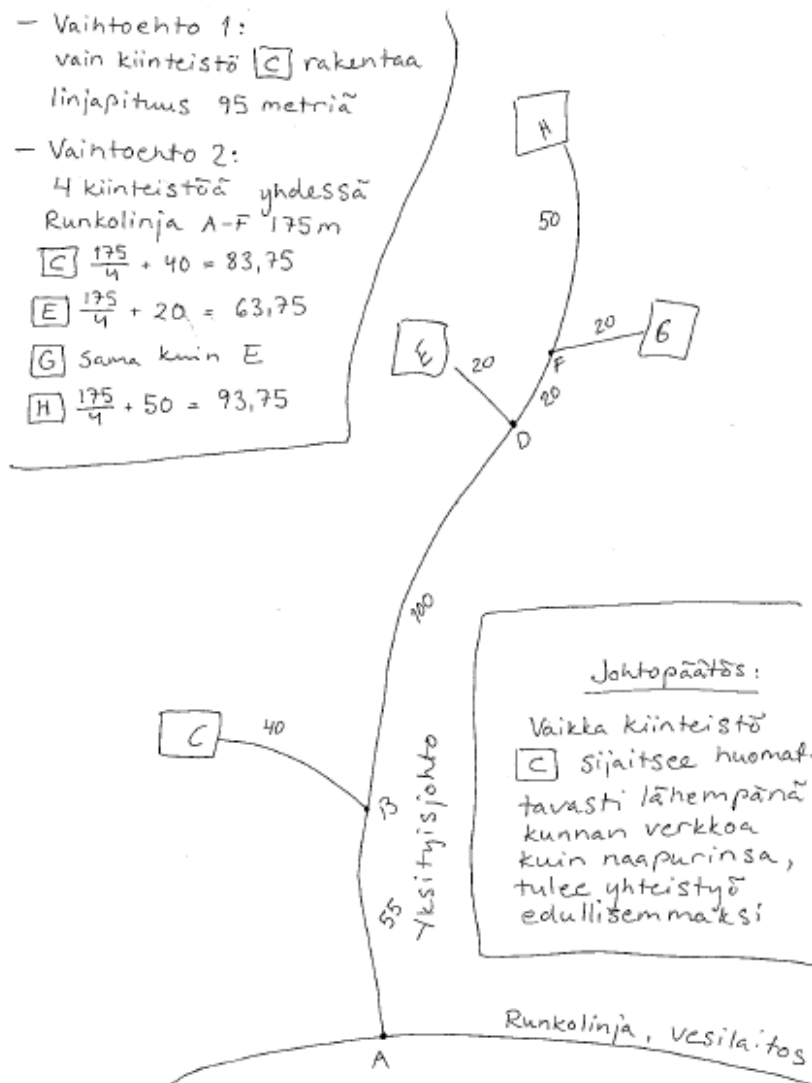 - Vaihtoehto 1:
vain kiinteistö C rakentaa
linjapituus 95 metriä
- Vaihtoehto 2:
4 kiinteistöä yhdessä
Runkolinja A-F 175m
C 175/4 + 40 = 83,75
E 175/4 + 20 = 63,75
G Sama kuin E
H 175/4 + 50 = 93,75
H
50
E
20
F
20
G
20
D
100
C
40
B
55
Yksityisjohto
A
Runkolinja, vesilaitos
Johtopäätös:
Vaikka kiinteistö
C sijaitsee huomat-
tavasti lähempänä
kunnan verkkoa
kuin naapurinsa,
tulee yhteistyö
edullisemmaksi